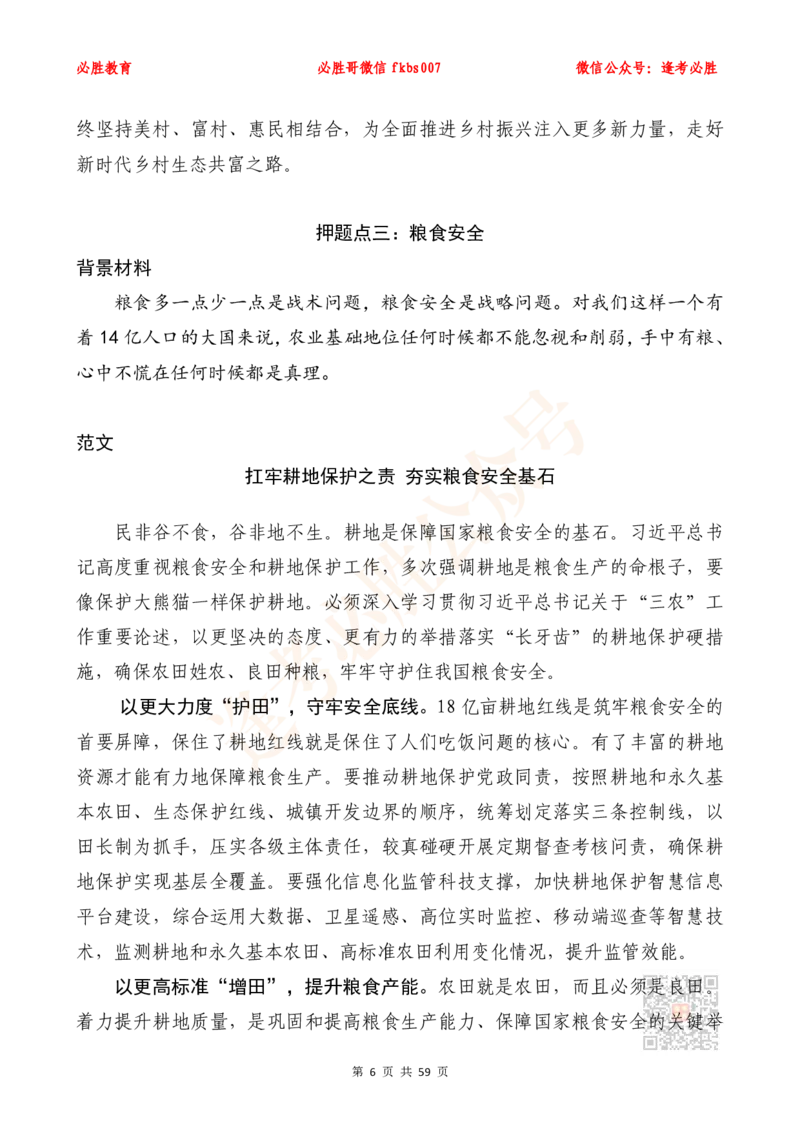 必胜教育 必胜哥微信 fkbs007 微信公众号：逢考必胜
终坚持美村、富村、惠民相结合，为全面推进乡村振兴注入更多新力量，走好
新时代乡村生态共富之路。
押题点三：粮食安全
背景材料
粮食多一点少一点是战术问题，粮食安全是战略问题。对我们这样一个有
着 14 亿人口的大国来说，农业基础地位任何时候都不能忽视和削弱，手中有粮、
心中不慌在任何时候都是真理。
范文
扛牢耕地保护之责 夯实粮食安全基石
民非谷不食，谷非地不生。耕地是保障国家粮食安全的基石。习近平总书
记高度重视粮食安全和耕地保护工作，多次强调耕地是粮食生产的命根子，要
像保护大熊猫一样保护耕地。必须深入学习贯彻习近平总书记关于“三农”工
作重要论述，以更坚决的态度、更有力的举措落实“长牙齿”的耕地保护硬措
施，确保农田姓农、良田种粮，牢牢守护住我国粮食安全。
以更大力度“护田”，守牢安全底线。18 亿亩耕地红线是筑牢粮食安全的
首要屏障，保住了耕地红线就是保住了人们吃饭问题的核心。有了丰富的耕地
资源才能有力地保障粮食生产。要推动耕地保护党政同责，按照耕地和永久基
本农田、生态保护红线、城镇开发边界的顺序，统筹划定落实三条控制线，以
田长制为抓手，压实各级主体责任，较真碰硬开展定期督查考核问责，确保耕
地保护实现基层全覆盖。要强化信息化监管科技支撑，加快耕地保护智慧信息
平台建设，综合运用大数据、卫星遥感、高位实时监控、移动端巡查等智慧技
术，监测耕地和永久基本农田、高标准农田利用变化情况，提升监管效能。
以更高标准“增田”，提升粮食产能。农田就是农田，而且必须是良田。
着力提升耕地质量，是巩固和提高粮食生产能力、保障国家粮食安全的关键举
第 6 页 共 59 页
逢考必胜公众号